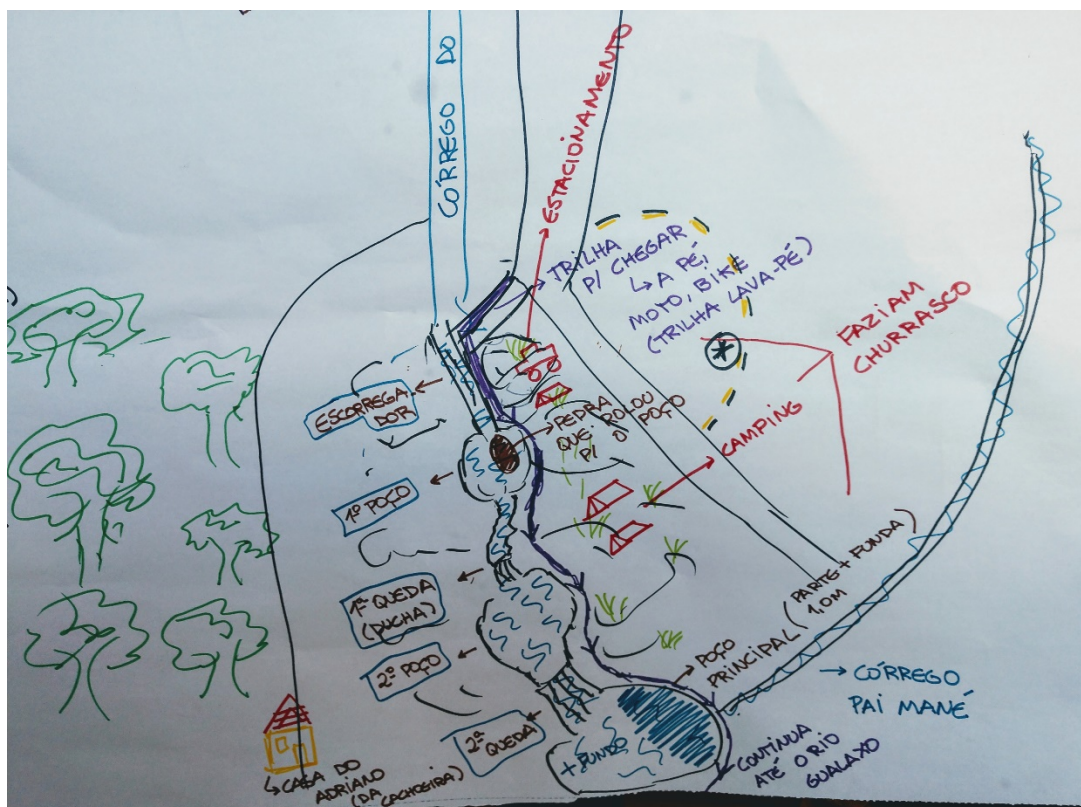 CÓRREGO DO
ESTACIONAMENTO
TRILHA
P/ CHEGAR
↳ A PÉ,
MOTO, BIKE
(TRILHA LAVA-PÉ)
*
FAZIAM
CHURRASCO
CAMPING
ESCORREGA
DOR
PEDRA
QUE ROLOU
P/ O POÇO
1º POÇO
1ª QUEDA
(DUCHA)
2º POÇO
2ª QUEDA
+ FUNDO
POÇO
PRINCIPAL (PARTE + FUNDA)
1,0M
→ CÓRREGO
PAI MANÉ
CONTINUA
ATÉ O RIO
GUALAXO
↳ CASA DO
ADRIANO
(DA CACHOEIRA)